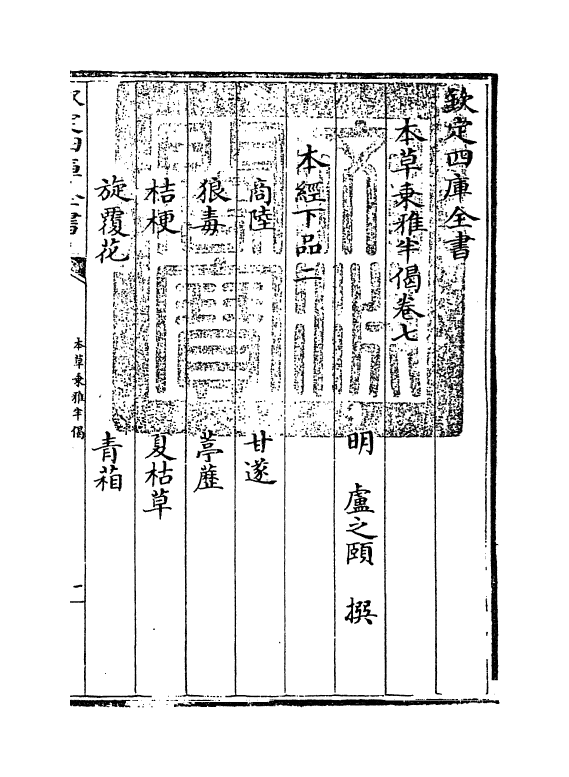 欽定四庫全書
本草乗雅半偈卷七
明 盧之頤 撰
本經下品二
商陸 甘遂
狼毒 葶藶
桔梗 夏枯草
旋覆花 青葙
欽定四庫全書
本草乗雅半偈
一